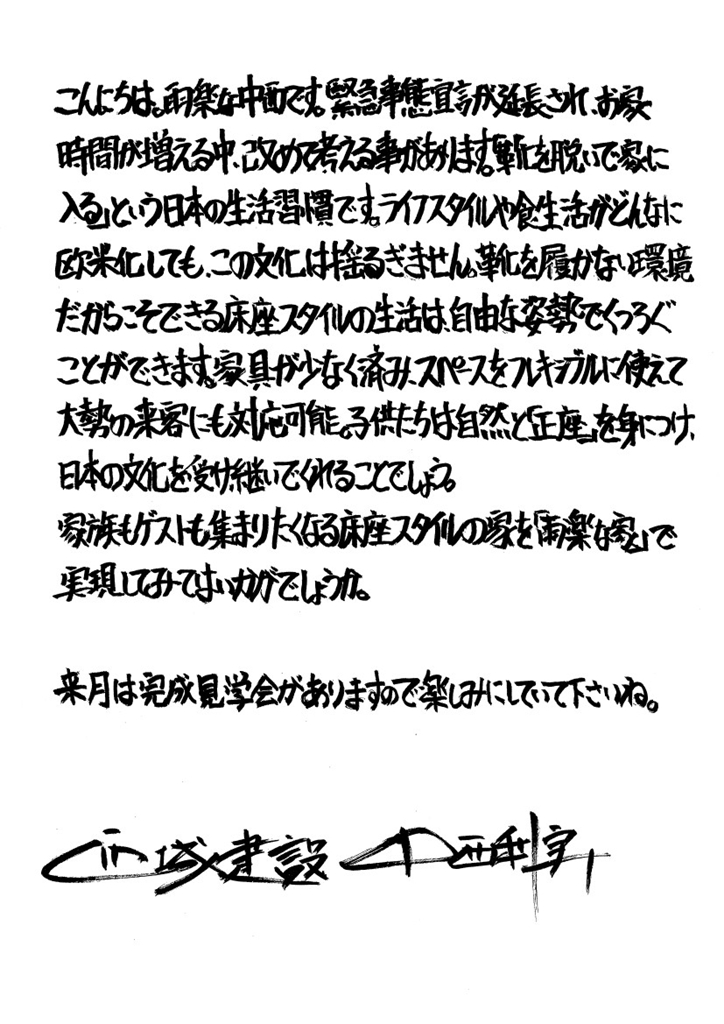 こんにちは。雨楽な中西です。緊急事態宣言が延長され、お家
時間が増える中、改めて考える事があります。「靴を脱いで家に
入る」という日本の生活習慣です。ライフスタイルや食生活がどんなに
欧米化しても、この文化は揺るぎません。靴を履かない環境
だからこそできる床座スタイルの生活は、自由な姿勢でくつろぐ
ことができます。家具が少なく済み、スペースをフレキシブルに使えて
大勢の来客にも対応可能。子供たちは自然と「正座」を身につけ、
日本の文化を受け継いでくれることでしょう。
家族もゲストも集まりたくなる床座スタイルの家を「雨楽な家」で
実現してみてはいかがでしょうか。
来月は完成見学会がありますので楽しみにしていて下さいね。
城建設 中西